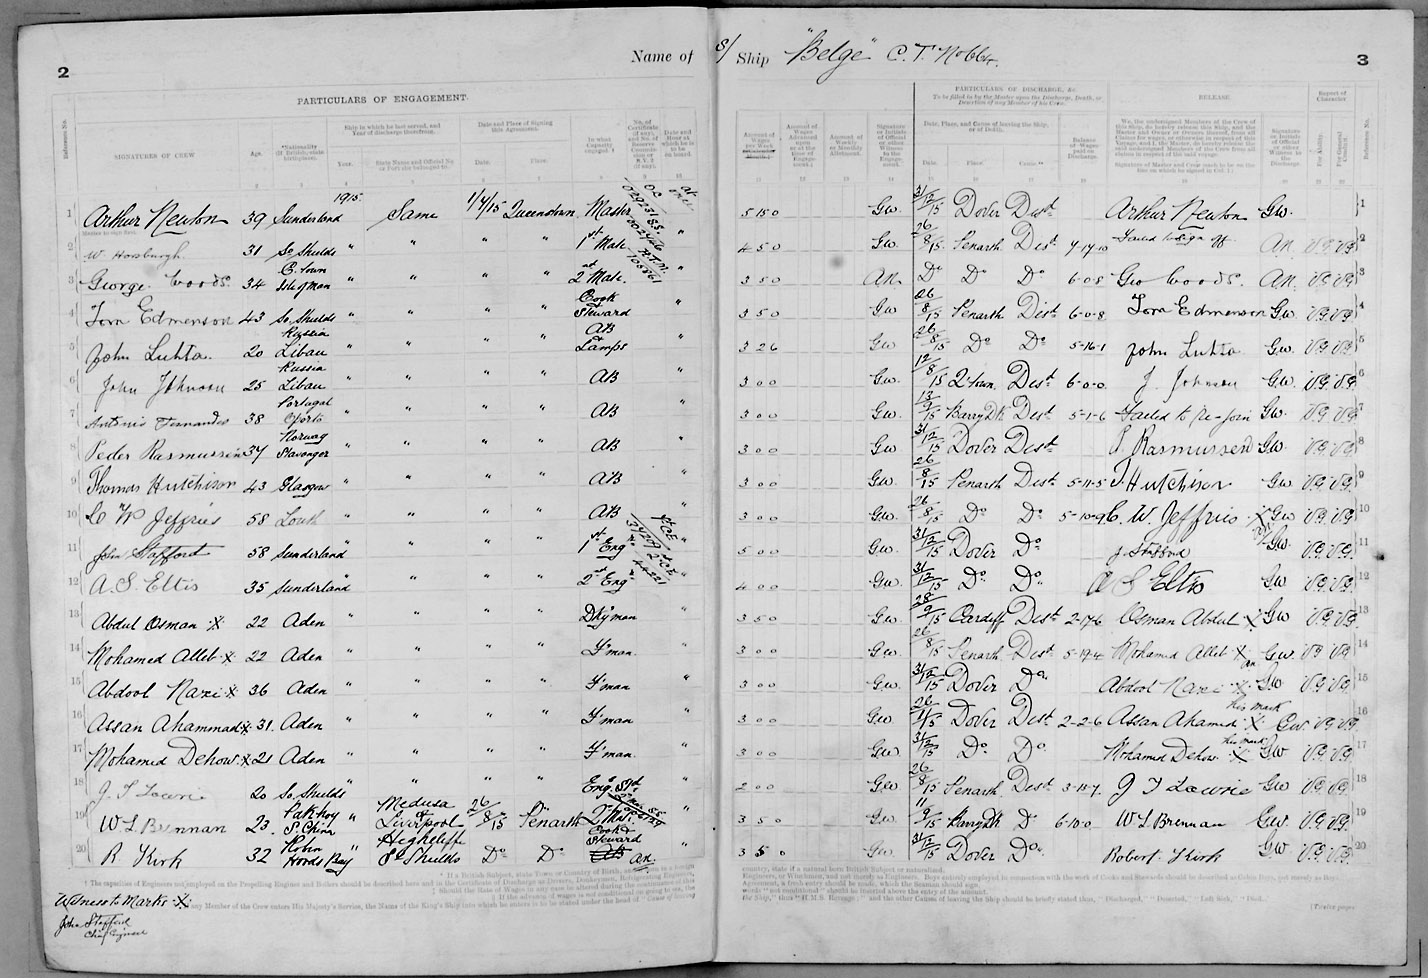 2
Name of S/ Ship "Belge" C. T. Nobbs.
3
PARTICULARS OF ENGAGEMENT.
PARTICULARS OF DISCHARGE, &c.
To be filled in by the Master upon the Discharge, Death, or Desertion of any Member of his Crew.
RELEASE
Report of Character
Reference No.
SIGNATURES OF CREW
Age.
*Nationality (If British, state birthplace).
Ship in which he last served, and Year of discharge therefrom.
Year.
State Name and Official No. or Port she belonged to.
Date and Place of Signing this Agreement.
Date.
Place.
In what Capacity engaged †
Date and Hour at which he is to be on board.
Amount of Wages per Week
Amount of Wages Advanced upon or at the time of Engagement.‡
Amount of Weekly or Monthly Allotment.
Signature or Initials of Official or other Witness to the Engagement.
Date, Place, and Cause of leaving the Ship, or of Death.
Date. Place. Cause
Balance of Wages paid on Discharge.
For Ability
For General Conduct
Reference No.
1 Arthur Newton 39 Sunderland 1915 Same 1/7/15 Queenstown Master at once 5 15 0 Gw. 31/12/15 Dover Dist Arthur Newton Gw. 1
2 W. Horsburgh 31 So Shields " " " " 1st Mate " 4 5 0 Gw. 26/8/15 Penarth Dist 9-17-10 Failed to sign off An. VG VG 2
3 George Woods 34 C. Town Isle of Man " " " " 2nd Mate. " 3 5 0 An. Do Do Do 6-0-8 Geo Woods. An. VG VG 3
4 Tom Edmenson 43 So. Shields " " " " Cook & Steward " 3 5 0 Gw 26/8/15 Penarth Dist 6-0-8 Tom Edmenson Gw. VG VG 4
5 John Luhta. 20 Russia Libau " " " " AB & Lamps " 3 2 6 Gw 26/8/15 Do Do 5-16-1 John Luhta Gw. VG VG 5
6 John Johnson 25 Russia Libau " " " " AB " 3 0 0 Gw. 12/8/15 Q'town Dist 6-0-0. J. Johnson Gw. VG VG 6
7 Antonio Fernandes 38 Portugal Oporto " " " " AB " 3 0 0 Gw. 13/9/15 Barry Dk Dist 5-1-6 Failed to re-join Gw. VG VG 7
8 Peder Rasmussen 34 Norway Stavanger " " " " AB " 3 0 0 Gw 31/12/15 Dover Dist P. Rasmussen Gw. VG VG 8
9 Thomas Hutchison 43 Glasgow " " " " AB " 3 0 0 Gw. 26/8/15 Penarth Dist 5-11-5 T Hutchison Gw VG VG 9
10 C W Jeffries 58 Louth " " " " AB " 3 0 0 Gw. 26/8/15 Do Do 5-10-9 C. W. Jeffries X Gw VG VG 10
11 John Stafford 58 Sunderland " " " " 1st Eng " 5 0 0 Gw 31/12/15 Dover Do J. Stafford Gw. VG VG 11
12 A. S. Eltis 35 Sunderland " " " " 2nd Eng " 4 0 0 Gw. 31/12/15 Do Do A S Eltis Gw VG VG 12
13 Abdul Osman X 22 Aden " " " " Dky'man " 3 5 0 Gw. 28/9/15 Cardiff Dist 2-17-6 Osman Abdul X Gw VG VG 13
14 Mohamed Alleb X 22 Aden " " " " F'man. " 3 0 0 Gw. 26/8/15 Penarth Dist 5-19-4 Mohamed Alleb X An Gw. VG VG 14
15 Abdool Nazi X 36 Aden " " " " F'man " 3 0 0 Gw. 31/12/15 Dover Do Abdool Nazi X Gw VG VG 15
16 Assan Ahammad X 31. Aden " " " " F'man " 3 0 0 Gw. 26/11/15 Dover Dist 2-2-6 Assan Ahamed his mark X Gw. VG VG 16
17 Mohamed Dehow X 21 Aden " " " " F'man. " 3 0 0 Gw 31/12/15 Do Do Mohamed Dehow his mark X Gw VG VG 17
18 J. T Lowrie 20 So. Shields " " " " Eng. Std " 2 0 0 Gw. 26/8/15 Penarth Dist 3-11-7 J T Lowrie Gw VG VG 18
19 W L Brennan 23. Pakhoy S. China " Medusa of Liverpool 26/8/15 Penarth 2nd Mate. " 3 5 0 Gw. 11/9/15 Barry Dk Do 6-10-0 W L Brennan Gw. VG VG 19
20 R Kirk 32 Robin Hoods Bay " Highcliffe So Shields Do Do Cook & Steward AB An. " 3 5 0 Gw 31/12/15 Dover Do Robert Kirk Gw VG VG 20
Witness to Marks X
John Stafford
Chief Engineer